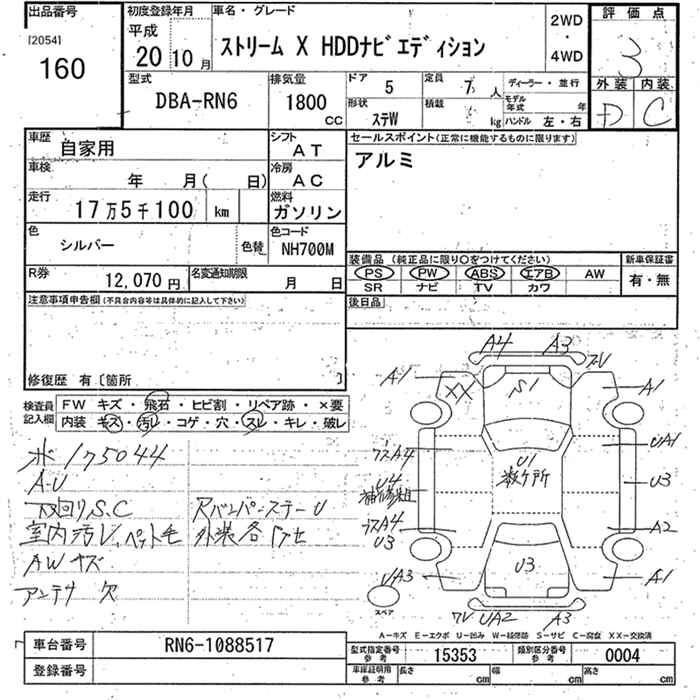 出品番号
[2054]
160
初度登録年月
平成
20 10 月
車名・グレード
ストリーム X HDDナビエディション
2WD
・
4WD
評価点
3
外装 内装
D C
型式
DBA-RN6
排気量
1800
CC
ドア 5
形状
ステW
定員 7 人
積載 kg
ディーラー・並行
モデル年式 年
ハンドル 左・右
車歴 自家用
シフト AT
車検 年 月( 日)
冷房 AC
走行 17万5千100 km
燃料 ガソリン
色 シルバー
色替
色コード NH700M
R券 12,070 円
名変通知期限 月 日
セールスポイント(正常に機能するものに限ります)
アルミ
装備品(純正品に限り○をつけてください)
PS PW ABS エアB AW
SR ナビ TV カワ
新車保証書
有・無
後日品
注意事項申告欄(不具合内容等は具体的に記入して下さい)
修復歴 有〔箇所 〕
検査員記入欄
FW キズ・飛石・ヒビ割・リペア跡・×要
内装 キズ・汚レ・コゲ・穴・スレ・キレ・破レ
ボ 175044
A.U
下回りS.C
室内汚レ、ペット毛
AWキズ
アンテナ 欠
Rバンパーステー U
外装各
A4 A3
A1 XX S1 A1
UA1
U1
数ヶ所
A4
U4
U3
A4
U3
A2
UA3
U3
A1
UA2 A3
スペア
A-キズ E-エクボ U-凹み W-補修跡 S-サビ C-腐食 XX-交換済
車台番号 RN6-1088517
登録番号
型式指定番号 参考 15353
類別区分番号 参考 0004
車庫証明用 参考 長さ cm 幅 cm 高さ cm